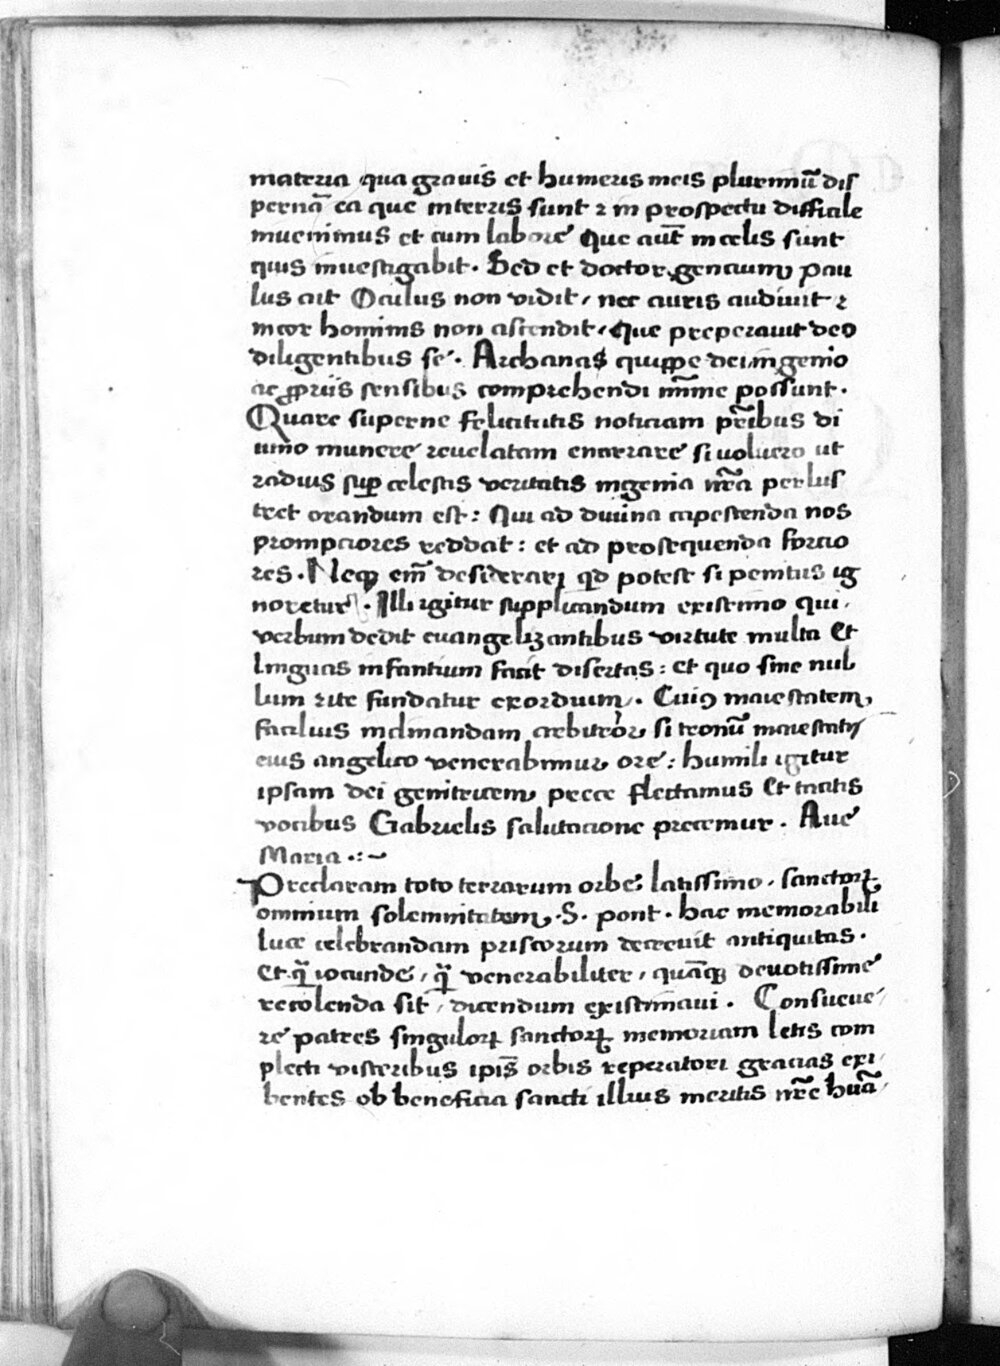 materia qua grauis et humeris meis plurimuͫ dis
pernā ea que in terris sunt ⁊ in prospectu difficile
inuenimus et cum labore Que aut̄ in celis sunt
quis inuestigabit. Sed et doctor gencium pau
lus ait Oculus non vidit / nec auris audiuit ⁊
in cor hominis non ascendit / Que preperauit deo
diligentibus se. Archanas quippe dei ingenio
ac ꝓpriis sensibus comprehendi mīme possunt.
Quare superne felicitatis noticiam pr̄ibus di
uino munere reuelatam enarrare si uoluero ut
radius suꝑ celestis veritatis ingenia nr̄a perlus
tret orandum est: Qui ad diuina capescenda nos
prompciores reddat: et ad prosequenda forcio
res. Neqꝫ em̄ desiderari qd potest si penitus ig
noretur. Illi igitur supplicandum existimo qui
verbum dedit euangelizantibus virtute multa Et
linguas infantium facit disertas: et quo sine nul
lum rite fundatur exordium. Cuiꝰ maiestatem
facilius inclinandam arbitror si tronū maiestatis
eius angelico venerabimur ore: humili igitur
ipsam dei genitricem prece flectamus Et tantis
vocibus Gabrielis salutacione precemur. Aue
Maria .:~
Preclaram toto terrarum orbe latissimo. sanctoꝝ
omnium solemnitatem .S. pont. hac memorabili
luce celebrandam priscorum decreuit antiquitas.
Et q̄ iocunde / q̄ venerabiliter / quāqꝫ deuotissime
recolenda sit / dicendum existimaui. Consueue
re patres singuloꝝ sanctoꝝ memoriam letis com
plecti visceribus ipīs orbis reperatori gracias exi
bentes ob beneficia sancti illius meritis nr̄e huā